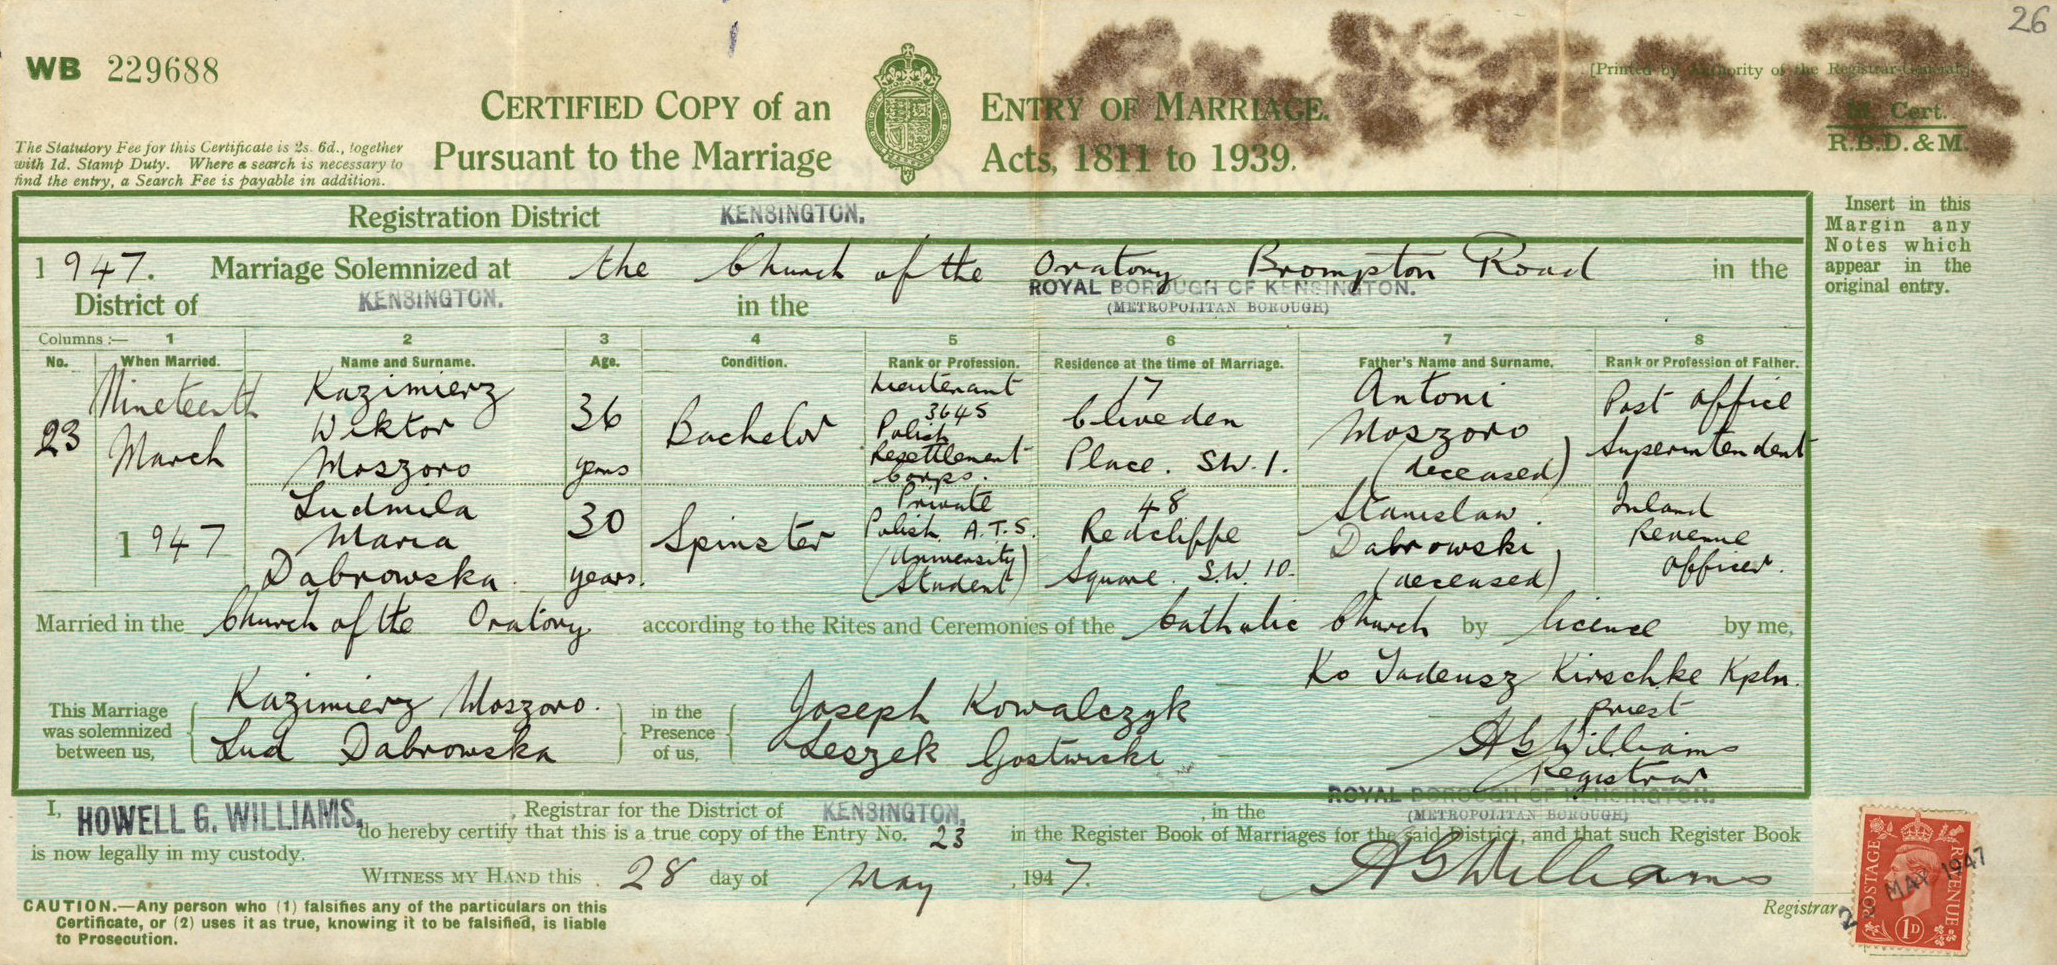 26
WB 229688
[Printed by Authority of the Registrar-General.]
CERTIFIED COPY of an ENTRY OF MARRIAGE.
Pursuant to the Marriage Acts, 1811 to 1939.
M. Cert.
R.B.D. & M.
The Statutory Fee for this Certificate is 2s. 6d., together
with 1d. Stamp Duty. Where a search is necessary to
find the entry, a Search Fee is payable in addition.
Registration District KENSINGTON.
Insert in this
Margin any
Notes which
appear in the
original entry.
1947. Marriage Solemnized at the Church of the Oratory Brompton Road in the
District of KENSINGTON. in the ROYAL BOROUGH OF KENSINGTON.
(METROPOLITAN BOROUGH)
Columns :— 1 2 3 4 5 6 7 8
No. When Married. Name and Surname. Age. Condition. Rank or Profession. Residence at the time of Marriage. Father's Name and Surname. Rank or Profession of Father.
23
Nineteenth
March
1947
Kazimierz
Wiktor
Moszoro
36
years
Bachelor
Lieutenant
3645
Polish
Resettlement
Corps.
17
Cliveden
Place. S.W.1.
Antoni
Moszoro
(deceased)
Post Office
Superintendent
Ludmila
Maria
Dabrowska.
30
years.
Spinster
Private
Polish A.T.S.
(University
Student)
48
Redcliffe
Square. S.W. 10.
Stanislaw
Dabrowski
(deceased)
Inland
Revenue
Officer.
Married in the Church of the Oratory according to the Rites and Ceremonies of the Catholic Church by licence by me,
Ks Tadeusz Kirschke Kpln.
priest
This Marriage
was solemnized
between us,
Kazimierz Moszoro.
Lud Dabrowska
in the
Presence
of us,
Joseph Kowalczyk
Leszek Gostwicki
HGWilliams
Registrar
I, HOWELL G. WILLIAMS, Registrar for the District of KENSINGTON, in the ROYAL BOROUGH OF KENSINGTON.
(METROPOLITAN BOROUGH)
do hereby certify that this is a true copy of the Entry No. 23 in the Register Book of Marriages for the said District, and that such Register Book
is now legally in my custody.
WITNESS MY HAND this 28 day of May, 1947.
HGWilliams
Registrar
CAUTION.—Any person who (1) falsifies any of the particulars on this
Certificate, or (2) uses it as true, knowing it to be falsified, is liable
to Prosecution.
POSTAGE REVENUE
1D
MAY 1947